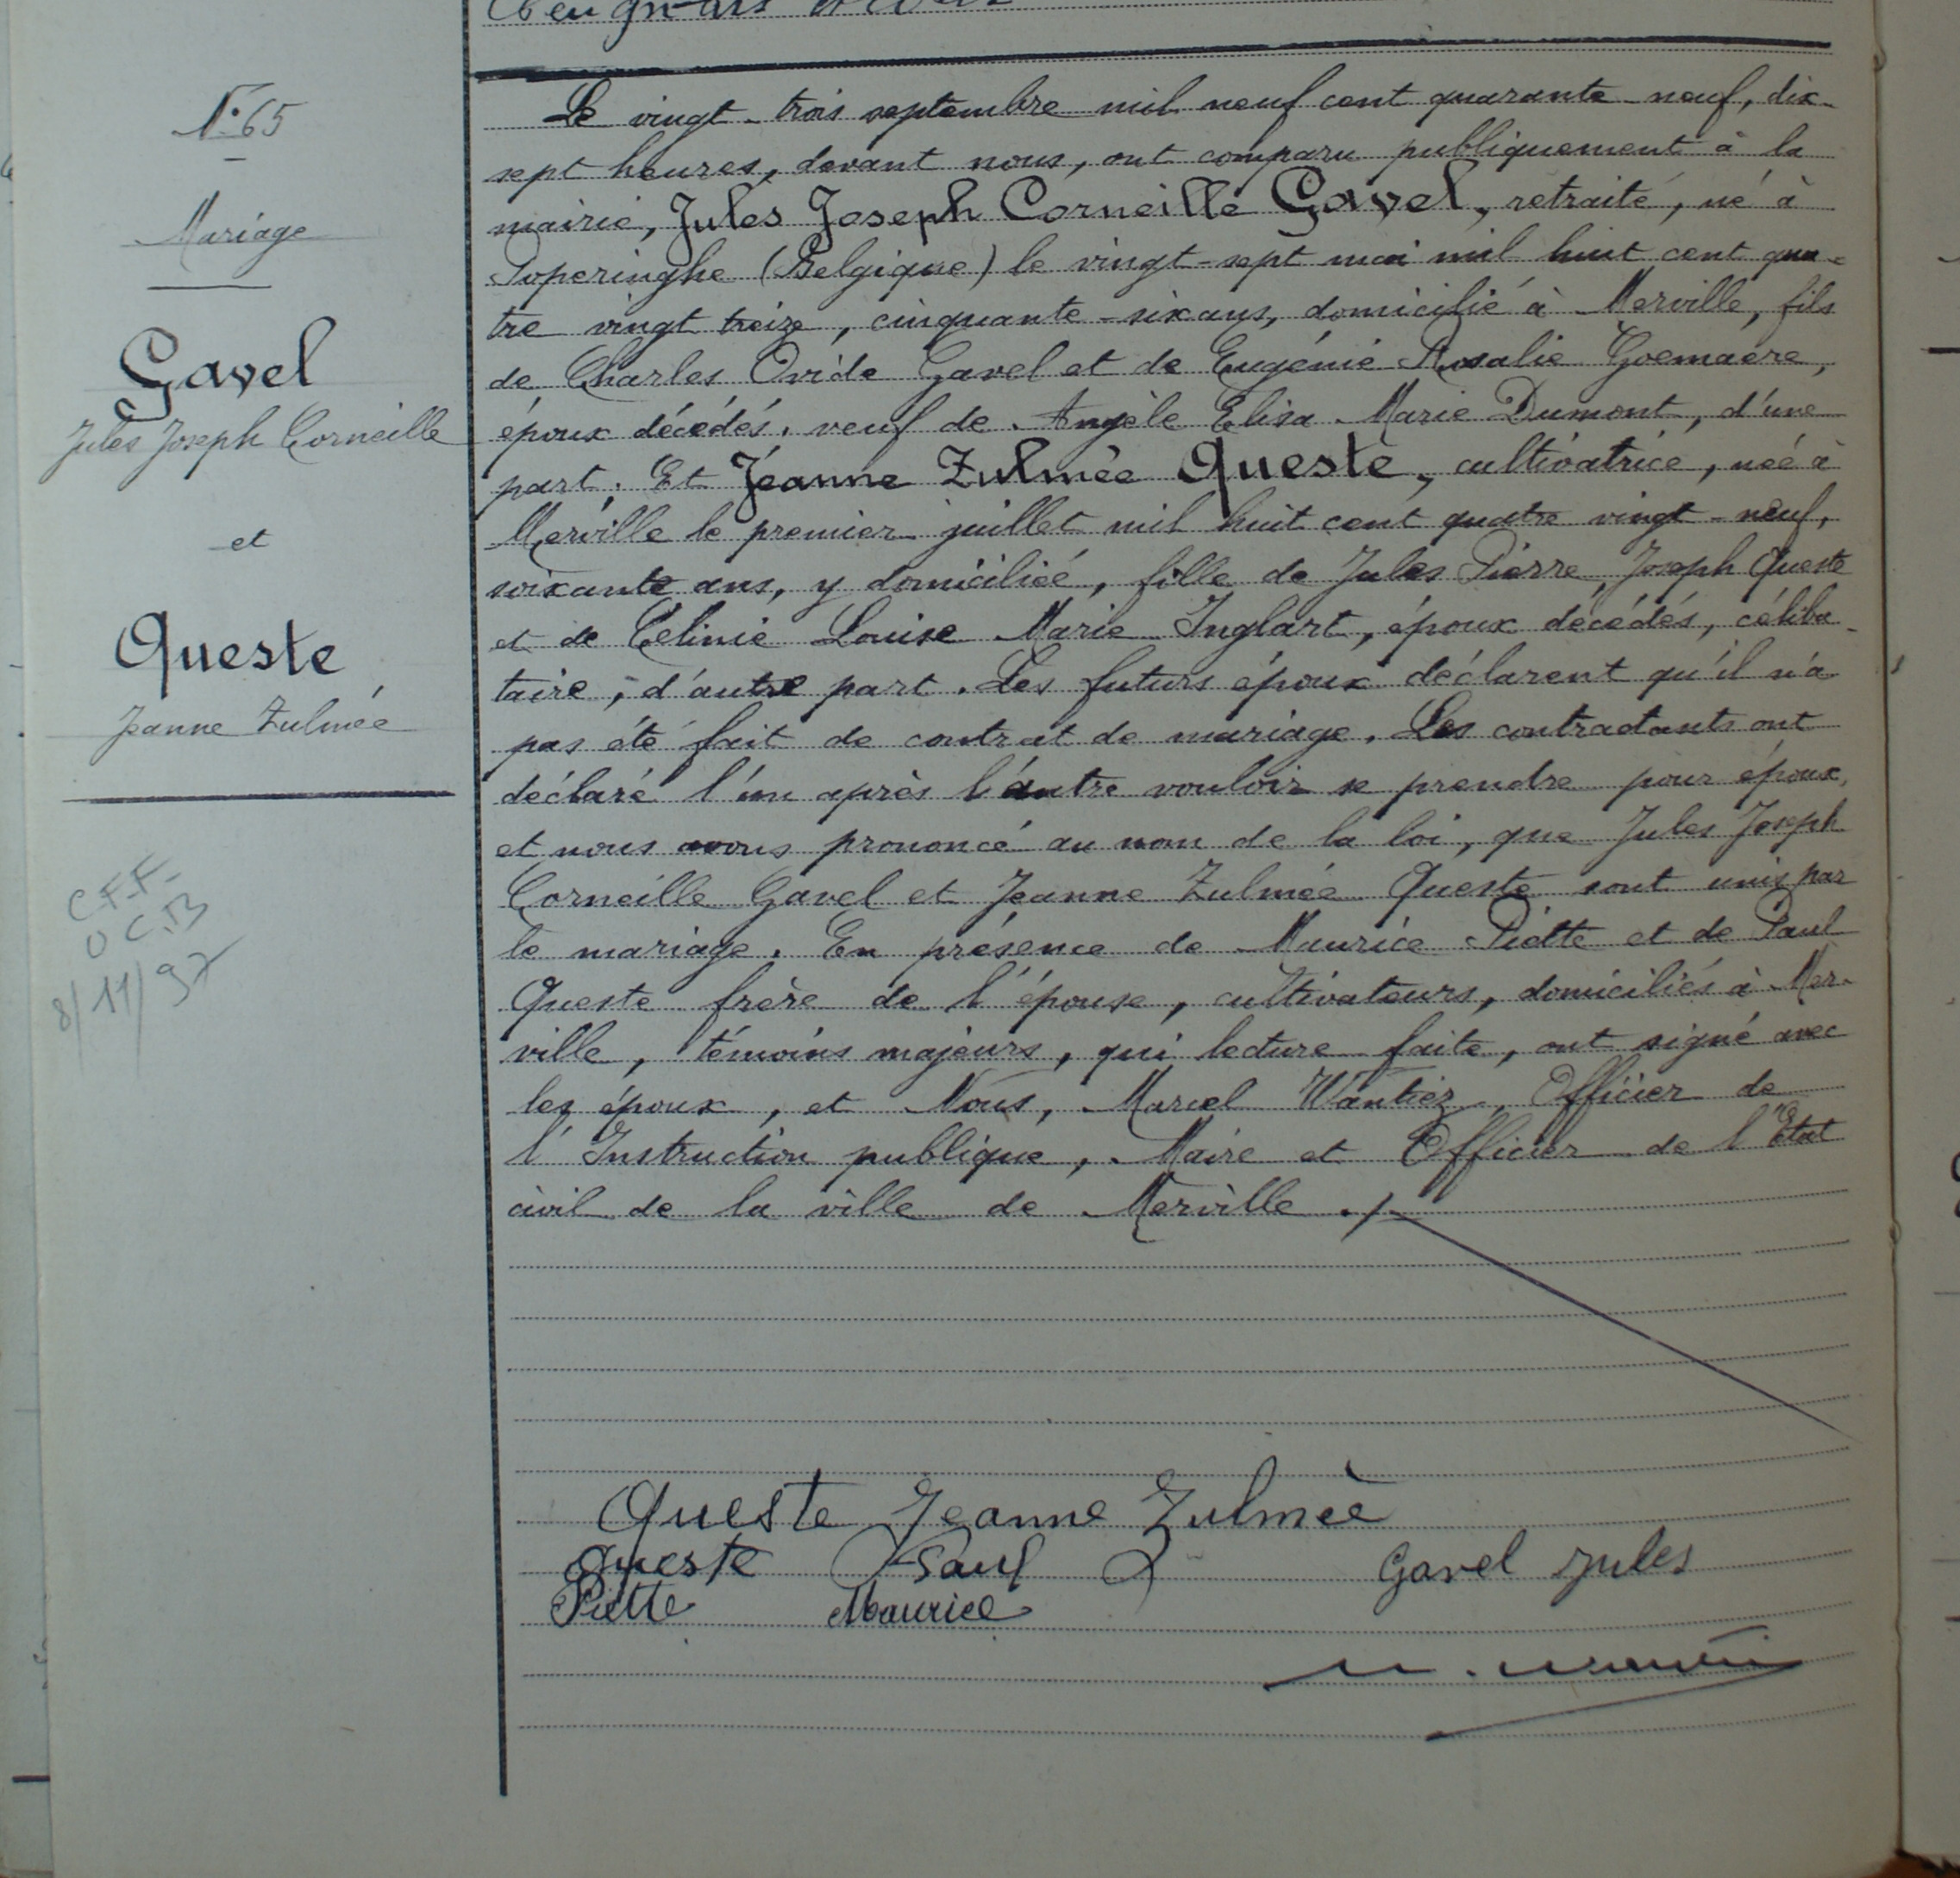 N° 65
Mariage
Gavel
Jules Joseph Corneille
et
Queste
Jeanne Zulmée
C.F.F.
U C.B
8/11/97
Le vingt-trois septembre mil neuf cent quarante-neuf, dix-
sept heures, devant nous, ont comparu publiquement à la
mairie, Jules Joseph Corneille Gavel, retraité, né à
Poperinghe (Belgique) le vingt-sept mai mil huit cent qua-
tre vingt treize, cinquante-six ans, domicilié à Merville, fils
de Charles Ovide Gavel et de Eugénie Rosalie Goemaere,
époux décédés, veuf de Angèle Elisa Marie Dumont, d'une
part. Et Jeanne Zulmée Queste, cultivatrice, née à
Merville le premier juillet mil huit cent quatre vingt-neuf,
soixante ans, y domiciliée, fille de Jules Pierre Joseph Queste
et de Célinie Louise Marie Inglart, époux décédés, céliba-
taire, d'autre part. Les futurs époux déclarent qu'il n'a
pas été fait de contrat de mariage. Les contractants ont
déclaré l'un après l'autre vouloir se prendre pour époux,
et nous avons prononcé au nom de la loi, que Jules Joseph
Corneille Gavel et Jeanne Zulmée Queste sont unis par
le mariage. En présence de Maurice Piette et de Paul
Queste frère de l'épouse, cultivateurs, domiciliés à Mer-
ville, témoins majeurs, qui lecture faite, ont signé avec
les époux, et Nous, Marcel Wantiez, Officier de
l'Instruction publique, Maire et Officier de l'État
civil de la ville de Merville ./.
Queste Jeanne Zulmée
Queste Paul
Gavel Jules
Piette Maurice